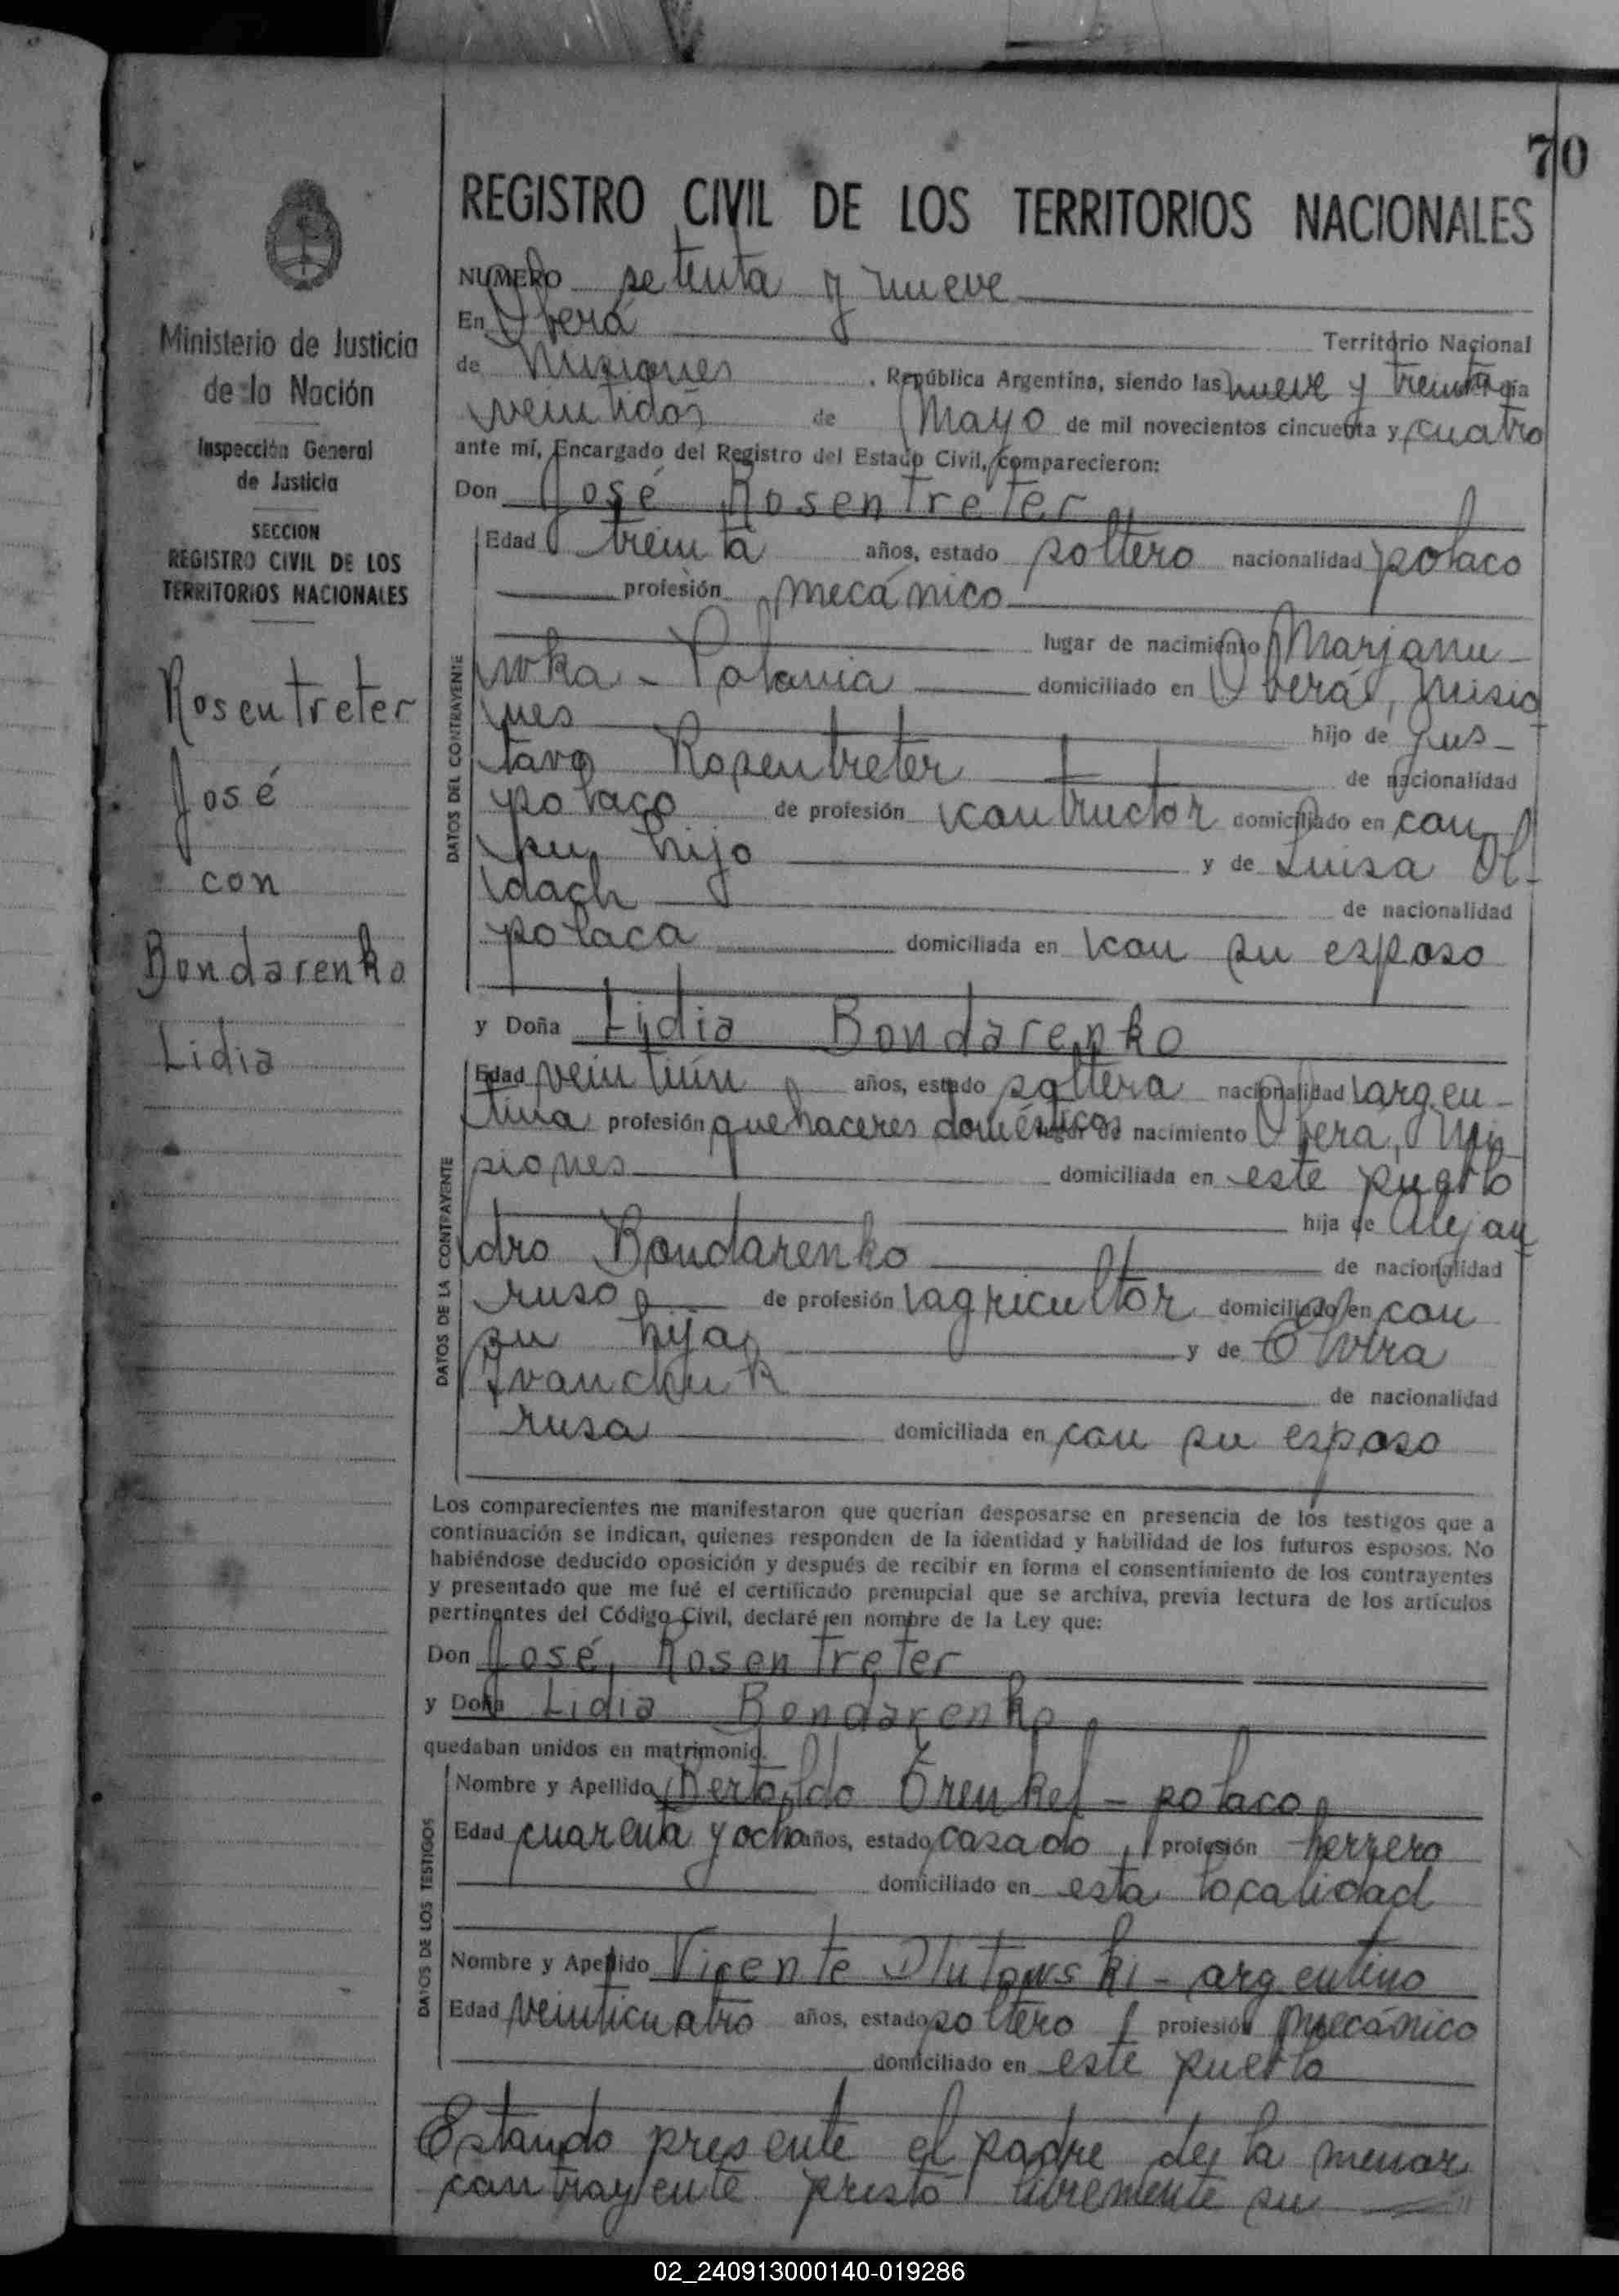 70
REGISTRO CIVIL DE LOS TERRITORIOS NACIONALES
NUMERO setenta y nueve
En Oberá Territorio Nacional
de Misiones, República Argentina, siendo las nueve y treinta día
veintidós de Mayo de mil novecientos cincuenta y cuatro
ante mí, Encargado del Registro del Estado Civil, comparecieron:
Don José Rosentreter
Edad treinta años, estado soltero nacionalidad polaco
profesión mecánico
lugar de nacimiento Marjanu-
wka - Polonia domiciliado en Oberá, Misio
nes hijo de Gus-
tavo Rosentreter de nacionalidad
polaco de profesión contructor domiciliado en con
su hijo y de Luisa Ol-
dach de nacionalidad
polaca domiciliada en con su esposo
y Doña Lidia Bondarenko
Edad veintiún años, estado soltera nacionalidad argen-
tina profesión quehaceres domésticos lugar de nacimiento Oberá, Mi
siones domiciliada en este pueblo
hija de Alejan
dro Bondarenko de nacionalidad
ruso de profesión agricultor domiciliado en con
su hija y de
Ivanchuk de nacionalidad
rusa domiciliada en con su esposo
Los comparecientes me manifestaron que querían desposarse en presencia de los testigos que a
continuación se indican, quienes responden de la identidad y habilidad de los futuros esposos. No
habiéndose deducido oposición y después de recibir en forma el consentimiento de los contrayentes
y presentado que me fué el certificado prenupcial que se archiva, previa lectura de los artículos
pertinentes del Código Civil, declaré en nombre de la Ley que:
Don José Rosentreter
y Doña Lidia Bondarenko
quedaban unidos en matrimonio.
Nombre y Apellido Bertoldo Drenkel - polaco
Edad cuarenta y ocho años, estado casado profesión herrero
domiciliado en esta localidad
Nombre y Apellido Vicente Dlutowski - argentino
Edad veinticuatro años, estado soltero profesión mecánico
domiciliado en este pueblo
Estando presente el padre de la menor
contrayente prestó libremente su
DATOS DEL CONTRAYENTE
DATOS DE LA CONTRAYENTE
DATOS DE LOS TESTIGOS
Ministerio de Justicia
de la Nación
Inspección General
de Justicia
SECCION
REGISTRO CIVIL DE LOS
TERRITORIOS NACIONALES
Rosentreter
José
con
Bondarenko
Lidia
02_240913000140-019286